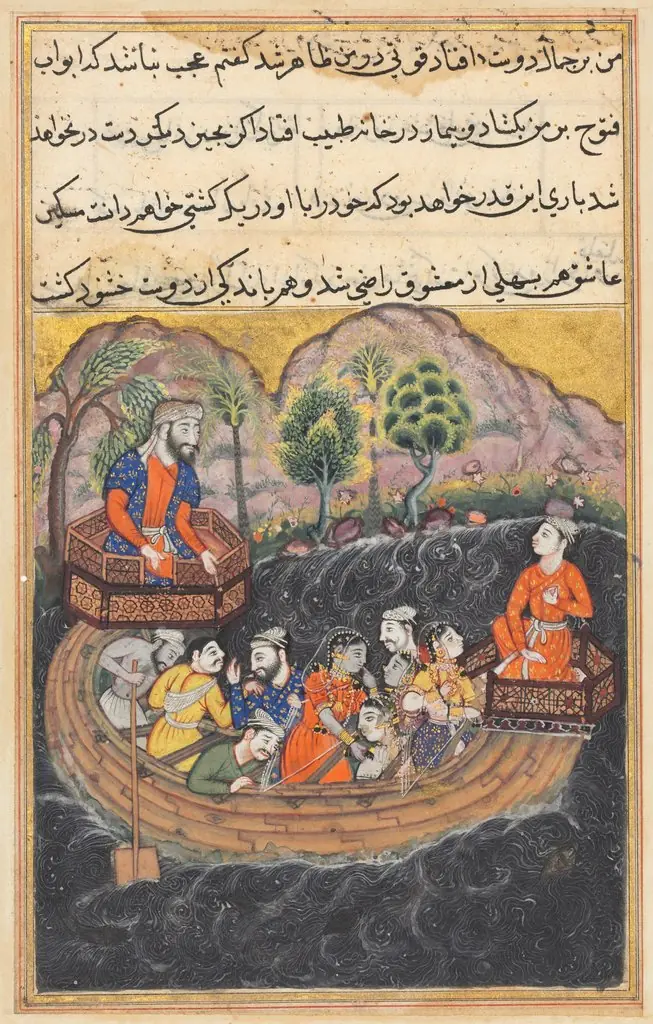 من بر جمال دوست افتاد قوتی در من ظاهر شد کفتم عجب نباشد که ابواب
فتوح بر من بکشاد و بیمار در خانه طبیب افتاد اکر بجیزی دیکر دست در نخواهد
شد باری این قدر خواهد بود که خود را با او در یک کشتی خواهم دانست مسکین
عاشق هم بسهلی از معشوق راضی شد و هم باندکی از دوست خشنود کشت